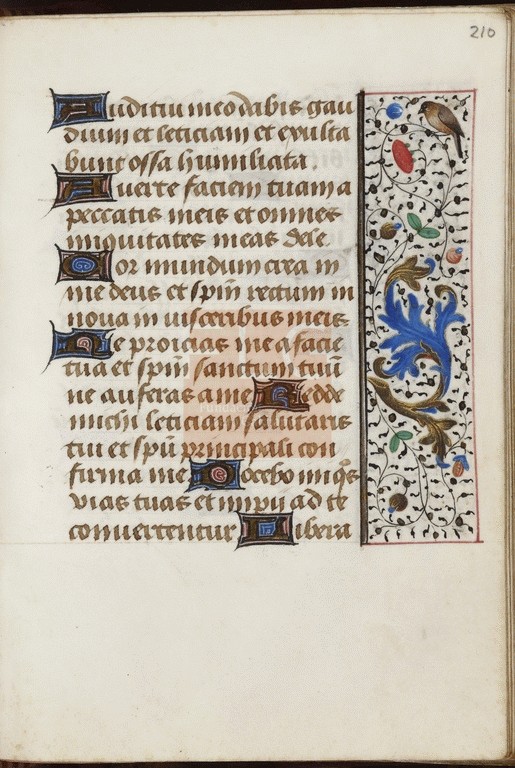 210
Auditui meo dabis gau
dium et leticiam et exulta
bunt ossa humiliata.
Auerte faciem tuam a
peccatis meis et omnes
iniquitates meas dele
Cor mundum crea in
me deus et spm rectum in
noua in uisceribus meis
Ne proicias me a facie
tua et spm sanctum tuū
ne auferas a me Redde
michi leticiam salutaris
tui et spū principali con
firma me Docebo iniqs
vias tuas et impij ad te
conuertentur Libera